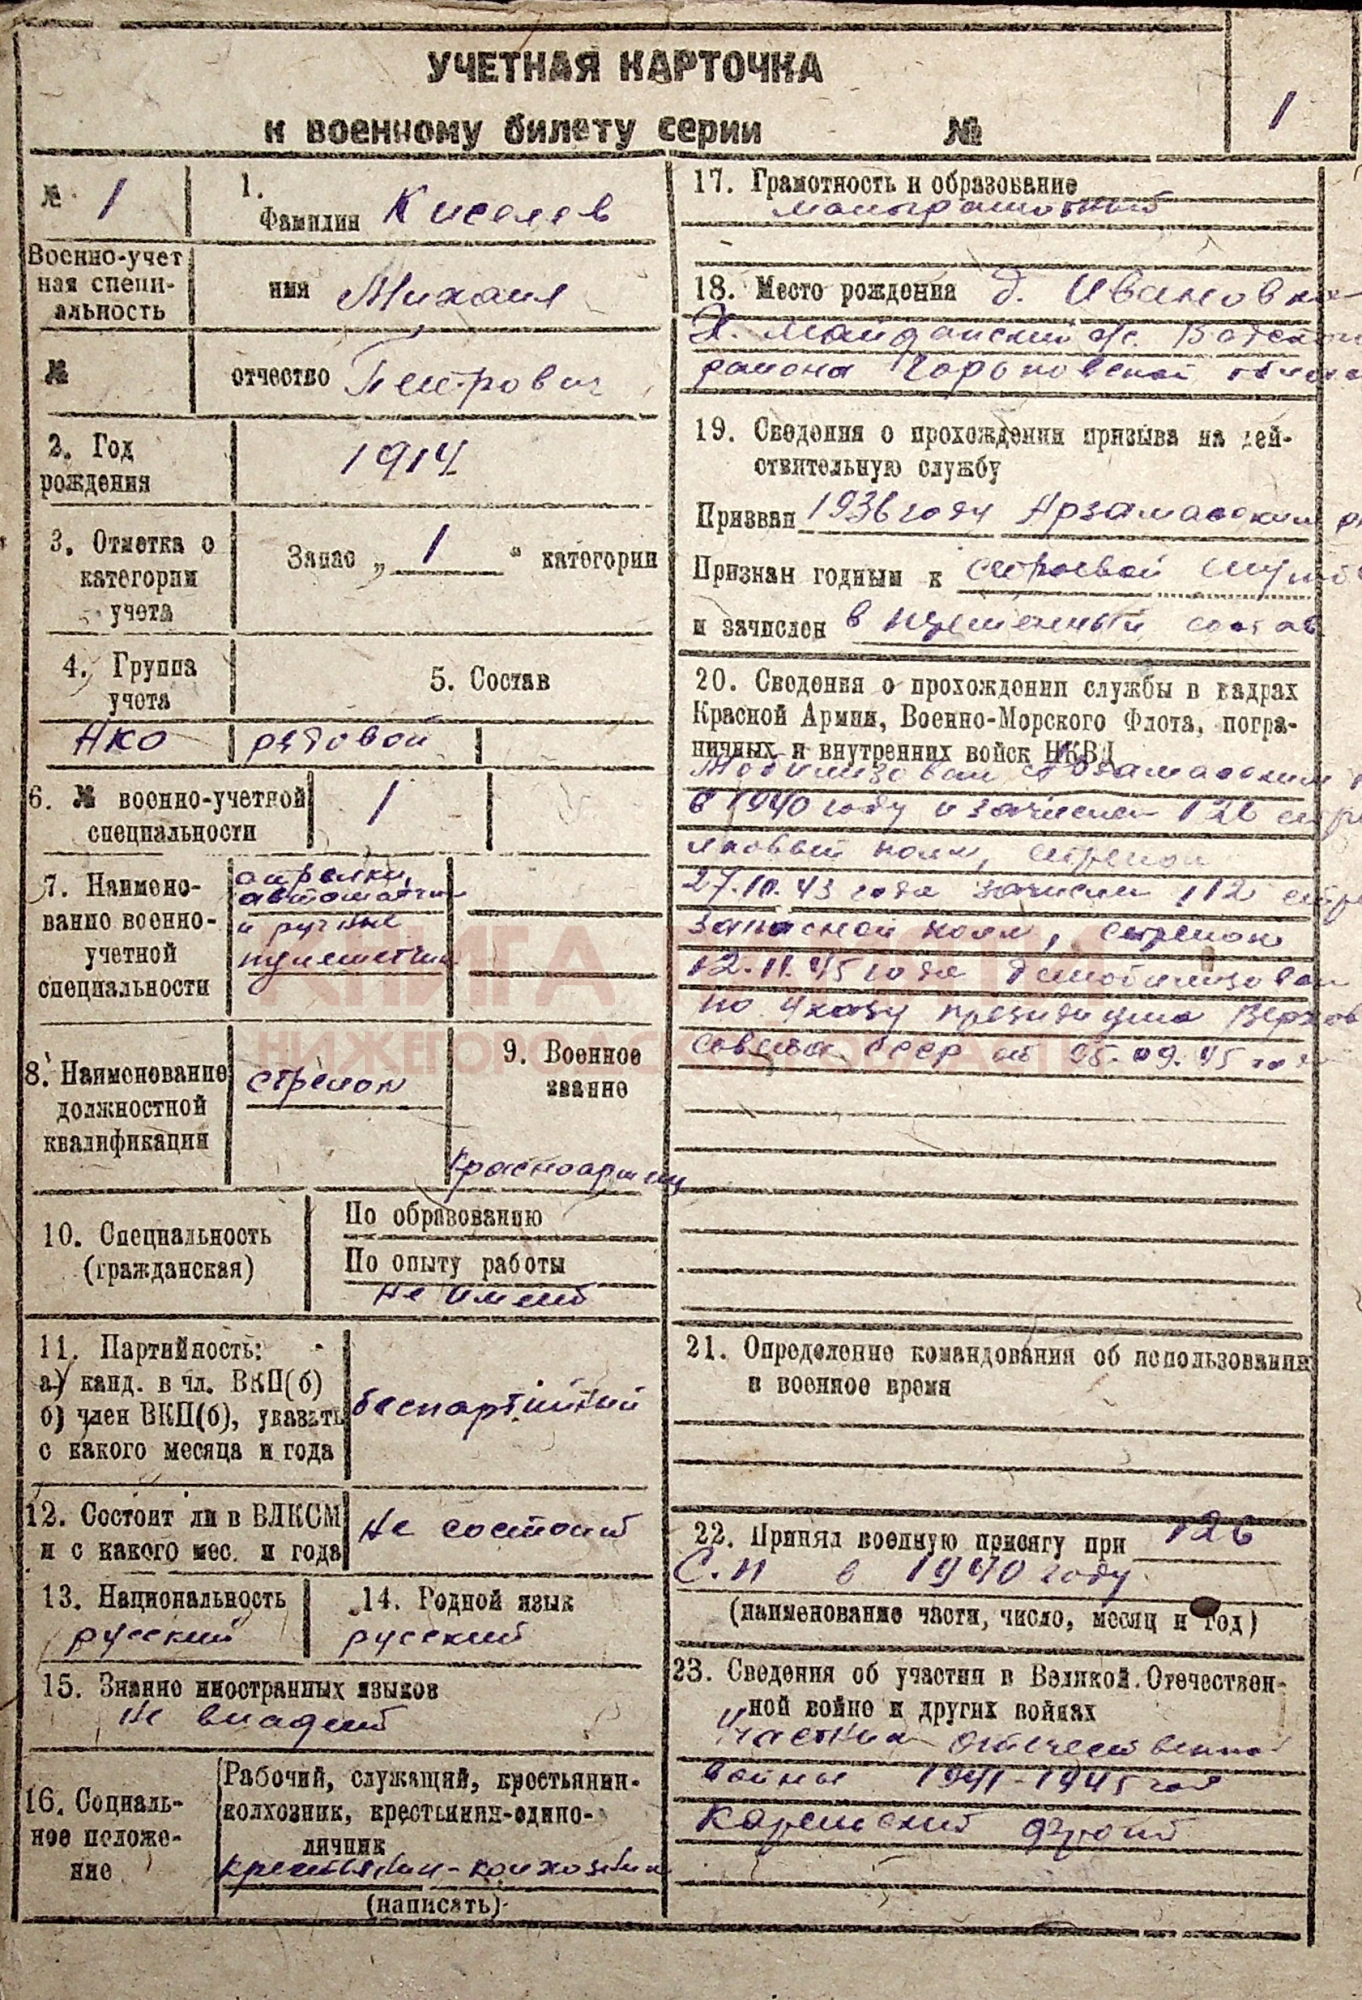 УЧЕТНАЯ КАРТОЧКА
к военному билету серии №
1
№ 1
1. Фамилия Киселев
Военно-учет
ная специ-
альность
имя Михаил
№
отчество Петрович
2. Год
рождения
1914
3. Отметка о
категории
учета
Запас „ 1 " категории
4. Группа
учета
5. Состав
НКО рядовой
6. № военно-учетной
специальности
1
7. Наимено-
вание военно-
учетной
специальности
стрелки,
автоматчи
и ручные
пулеметчи
8. Наименование
должностной
квалификации
стрелок
9. Военное
звание
красноармеец
10. Специальность
(гражданская)
По образованию
По опыту работы
Не имеет
11. Партийность:
а) канд. в чл. ВКП(б)
б) член ВКП(б), указать
с какого месяца и года
беспартийный
12. Состоит ли в ВЛКСМ
и с какого мес. и года
Не состоит
13. Национальность
русский
14. Родной язык
русский
15. Знание иностранных языков
Не владеет
16. Социаль-
ное положе-
ние
Рабочий, служащий, крестьянин-
колхозник, крестьянин-едино-
личник
крестьянин-колхозник
(написать)
17. Грамотность и образование
малограмотный
18. Место рождения д. Ивановка
Х. Майданский с/с. Вадского
района Горьковской области
19. Сведения о прохождении призыва на дей-
ствительную службу
Призван 1936 году Арзамасским
Признан годным к строевой службе
и зачислен в переменный состав
20. Сведения о прохождении службы в кадрах
Красной Армии, Военно-Морского Флота, погра-
ничных и внутренних войск НКВД
Мобилизован Арзамасским
в 1940 году и зачислен 126 стре
лковый полк, стрелок
27.10.43 года зачислен 112 стре
запасной полк, стрелок
12.11.45 года демобилизован
по Указу президиума Верхов
Совета СССР от 25.09.45 года
21. Определение командования об использовании
в военное время
22. Принял военную присягу при 126
С.П в 1940 году
(наименование части, число, месяц и год)
23. Сведения об участии в Великой Отечествен-
ной войне и других войнах
Участник отечественной
войны 1941-1945 год
Карельский фронт
КНИГА ПАМЯТИ
НИЖЕГОРОДСКОЙ ОБЛАСТИ